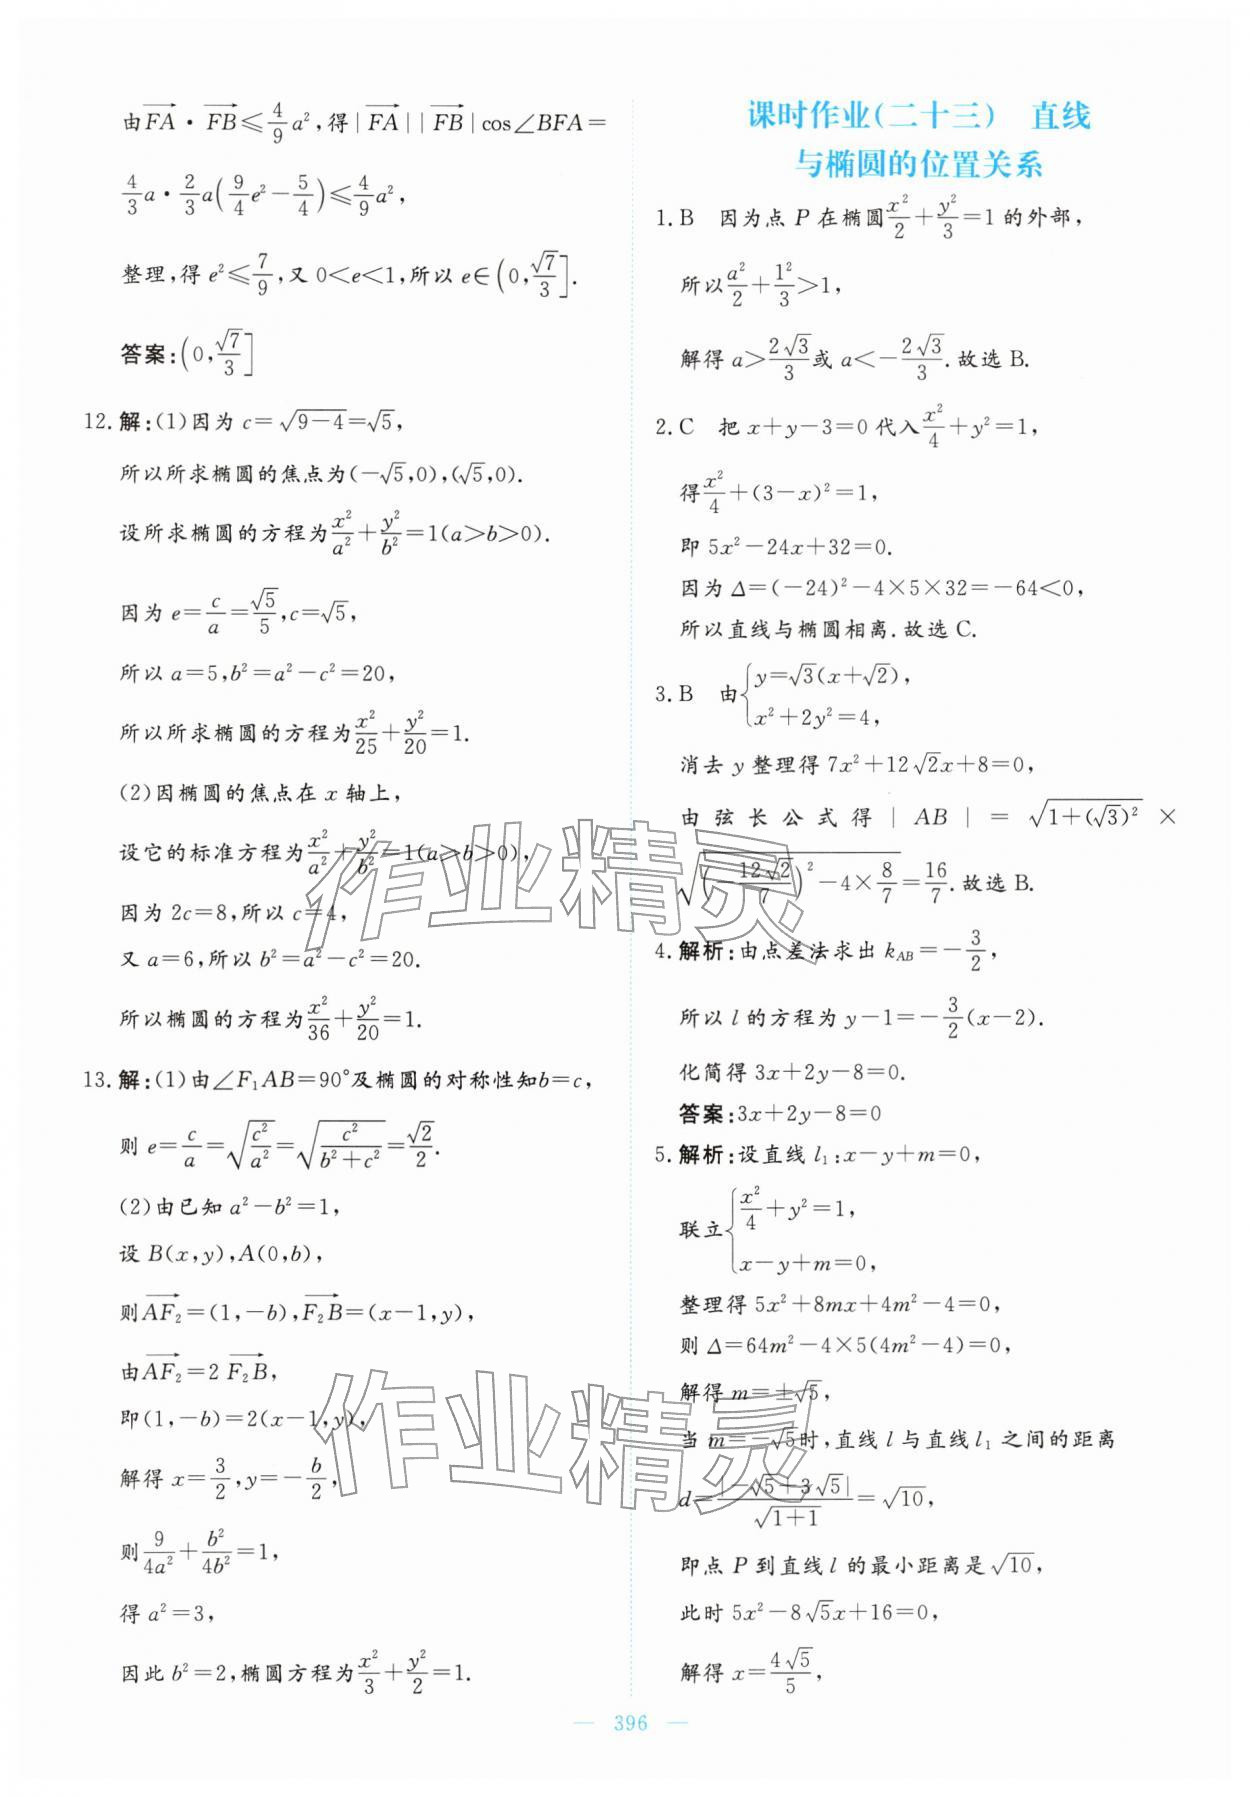 由$\overrightarrow{FA}\cdot\overrightarrow{FB}\leqslant\frac{4}{9}a^2$,得$|\overrightarrow{FA}||\overrightarrow{FB}|\cos\angle BFA=$
$\frac{4}{3}a\cdot\frac{2}{3}a\left(\frac{9}{4}e^2-\frac{5}{4}\right)\leqslant\frac{4}{9}a^2$,
整理,得$e^2\leqslant\frac{7}{9}$,又$0<e<1$,所以$e\in\left(0,\frac{\sqrt{7}}{3}\right]$.
答案:$\left(0,\frac{\sqrt{7}}{3}\right]$
12.解:(1)因为$c=\sqrt{9-4}=\sqrt{5}$,
所以所求椭圆的焦点为$(-\sqrt{5},0),(\sqrt{5},0)$.
设所求椭圆的方程为$\frac{x^2}{a^2}+\frac{y^2}{b^2}=1(a>b>0)$.
因为$e=\frac{c}{a}=\frac{\sqrt{5}}{5},c=\sqrt{5}$,
所以$a=5,b^2=a^2-c^2=20$,
所以所求椭圆的方程为$\frac{x^2}{25}+\frac{y^2}{20}=1$.
(2)因椭圆的焦点在x轴上,
设它的标准方程为$\frac{x^2}{a^2}+\frac{y^2}{b^2}=1(a>b>0)$,
因为$2c=8$,所以$c=4$,
又$a=6$,所以$b^2=a^2-c^2=20$.
所以椭圆的方程为$\frac{x^2}{36}+\frac{y^2}{20}=1$.
13.解:(1)由$\angle F_1AB=90°$及椭圆的对称性知$b=c$,
则$e=\frac{c}{a}=\sqrt{\frac{c^2}{a^2}}=\sqrt{\frac{c^2}{b^2+c^2}}=\frac{\sqrt{2}}{2}$.
(2)由已知$a^2-b^2=1$,
设$B(x,y),A(0,b)$,
则$\overrightarrow{AF_2}=(1,-b),\overrightarrow{F_2B}=(x-1,y)$,
由$\overrightarrow{AF_2}=2\overrightarrow{F_2B}$,
即$(1,-b)=2(x-1,y)$,
解得$x=\frac{3}{2},y=-\frac{b}{2}$,
则$\frac{9}{4a^2}+\frac{b^2}{4b^2}=1$,
得$a^2=3$,
因此$b^2=2$,椭圆方程为$\frac{x^2}{3}+\frac{y^2}{2}=1$.
课时作业(二十三) 直线
与椭圆的位置关系
1.B 因为点P在椭圆$\frac{x^2}{2}+\frac{y^2}{3}=1$的外部,
所以$\frac{a^2}{2}+\frac{1^2}{3}>1$,
解得$a>\frac{2\sqrt{3}}{3}$或$a<-\frac{2\sqrt{3}}{3}$.故选B.
2.C 把$x+y-3=0$代入$\frac{x^2}{4}+y^2=1$,
得$\frac{x^2}{4}+(3-x)^2=1$,
即$5x^2-24x+32=0$.
因为$\Delta=(-24)^2-4×5×32=-64<0$,
所以直线与椭圆相离.故选C.
3.B 由$\begin{cases}y=\sqrt{3}(x+\sqrt{2}),\\x^2+2y^2=4,\end{cases}$
消去y整理得$7x^2+12\sqrt{2}x+8=0$,
由弦长公式得$|AB|=\sqrt{1+(\sqrt{3})^2}×$
$\sqrt{\left(-\frac{12\sqrt{2}}{7}\right)^2-4×\frac{8}{7}}=\frac{16}{7}$.故选B.
4.解析:由点差法求出$k_{AB}=-\frac{3}{2}$,
所以l的方程为$y-1=-\frac{3}{2}(x-2)$.
化简得$3x+2y-8=0$.
答案:$3x+2y-8=0$
5.解析:设直线$l_1:x-y+m=0$,
联立$\begin{cases}\frac{x^2}{4}+y^2=1,\\x-y+m=0,\end{cases}$
整理得$5x^2+8mx+4m^2-4=0$,
则$\Delta=64m^2-4×5(4m^2-4)=0$,
解得$m=±\sqrt{5}$,
当$m=-\sqrt{5}$时,直线l与直线$l_1$之间的距离
$d=\frac{|-\sqrt{5}+3\sqrt{5}|}{\sqrt{1+1}}=\sqrt{10}$,
即点P到直线l的最小距离是$\sqrt{10}$,
此时$5x^2-8\sqrt{5}x+16=0$,
解得$x=\frac{4\sqrt{5}}{5}$,
— 396 —
作业精灵
作业精灵